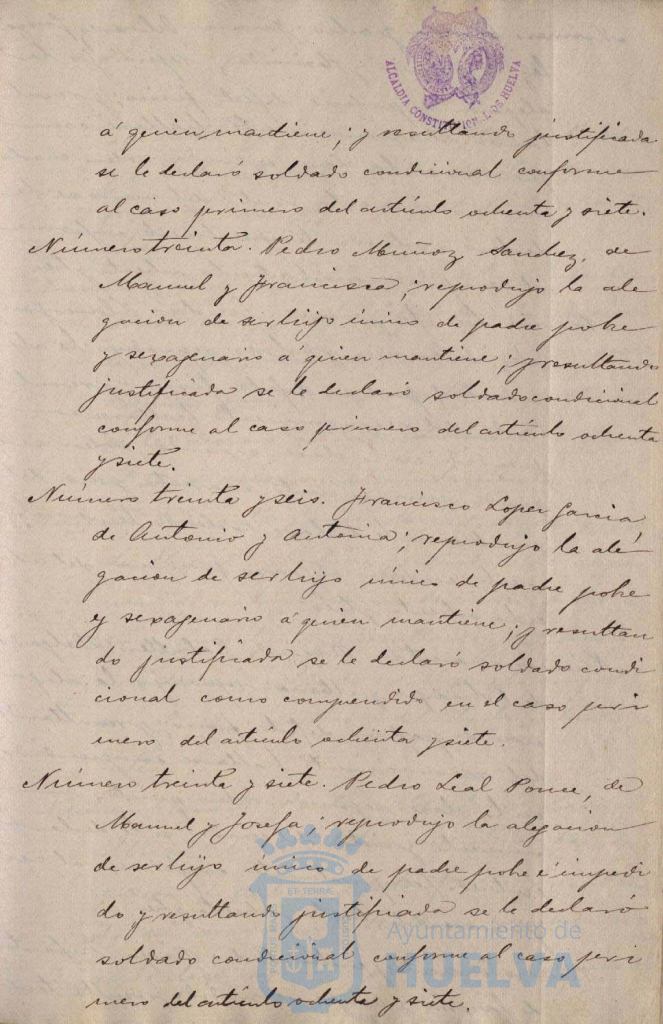 ALCALDIA CONSTITUCIONAL DE HUELVA
á quien mantiene; y resultando justificada
se le declaró soldado condicional conforme
al caso primero del artículo ochenta y siete.
Número treinta. Pedro Muñoz Sanchez, de
Manuel y Francisca; reprodujo la ale
gacion de ser hijo único de padre pobre
y sexagenario á quien mantiene; y resultando
justificada se le declaró soldado condicional
conforme al caso primero del artículo ochenta
y siete.
Número treinta y seis. Francisco Lopez Garcia
de Antonio y Antonia; reprodujo la ale
gacion de ser hijo único de padre pobre
y sexagenario á quien mantiene; y resultan
do justificada se le declaró soldado condi
cional como compendido en el caso pri
mero del artículo ochenta y siete.
Número treinta y siete. Pedro Leal Ponce, de
Manuel y Josefa; reprodujo la alegacion
de ser hijo único de padre pobre é impedi
do y resultando justificada se le declaró
soldado condicional conforme al caso pri
mero del artículo ochenta y siete.
Ayuntamiento de
HUELVA